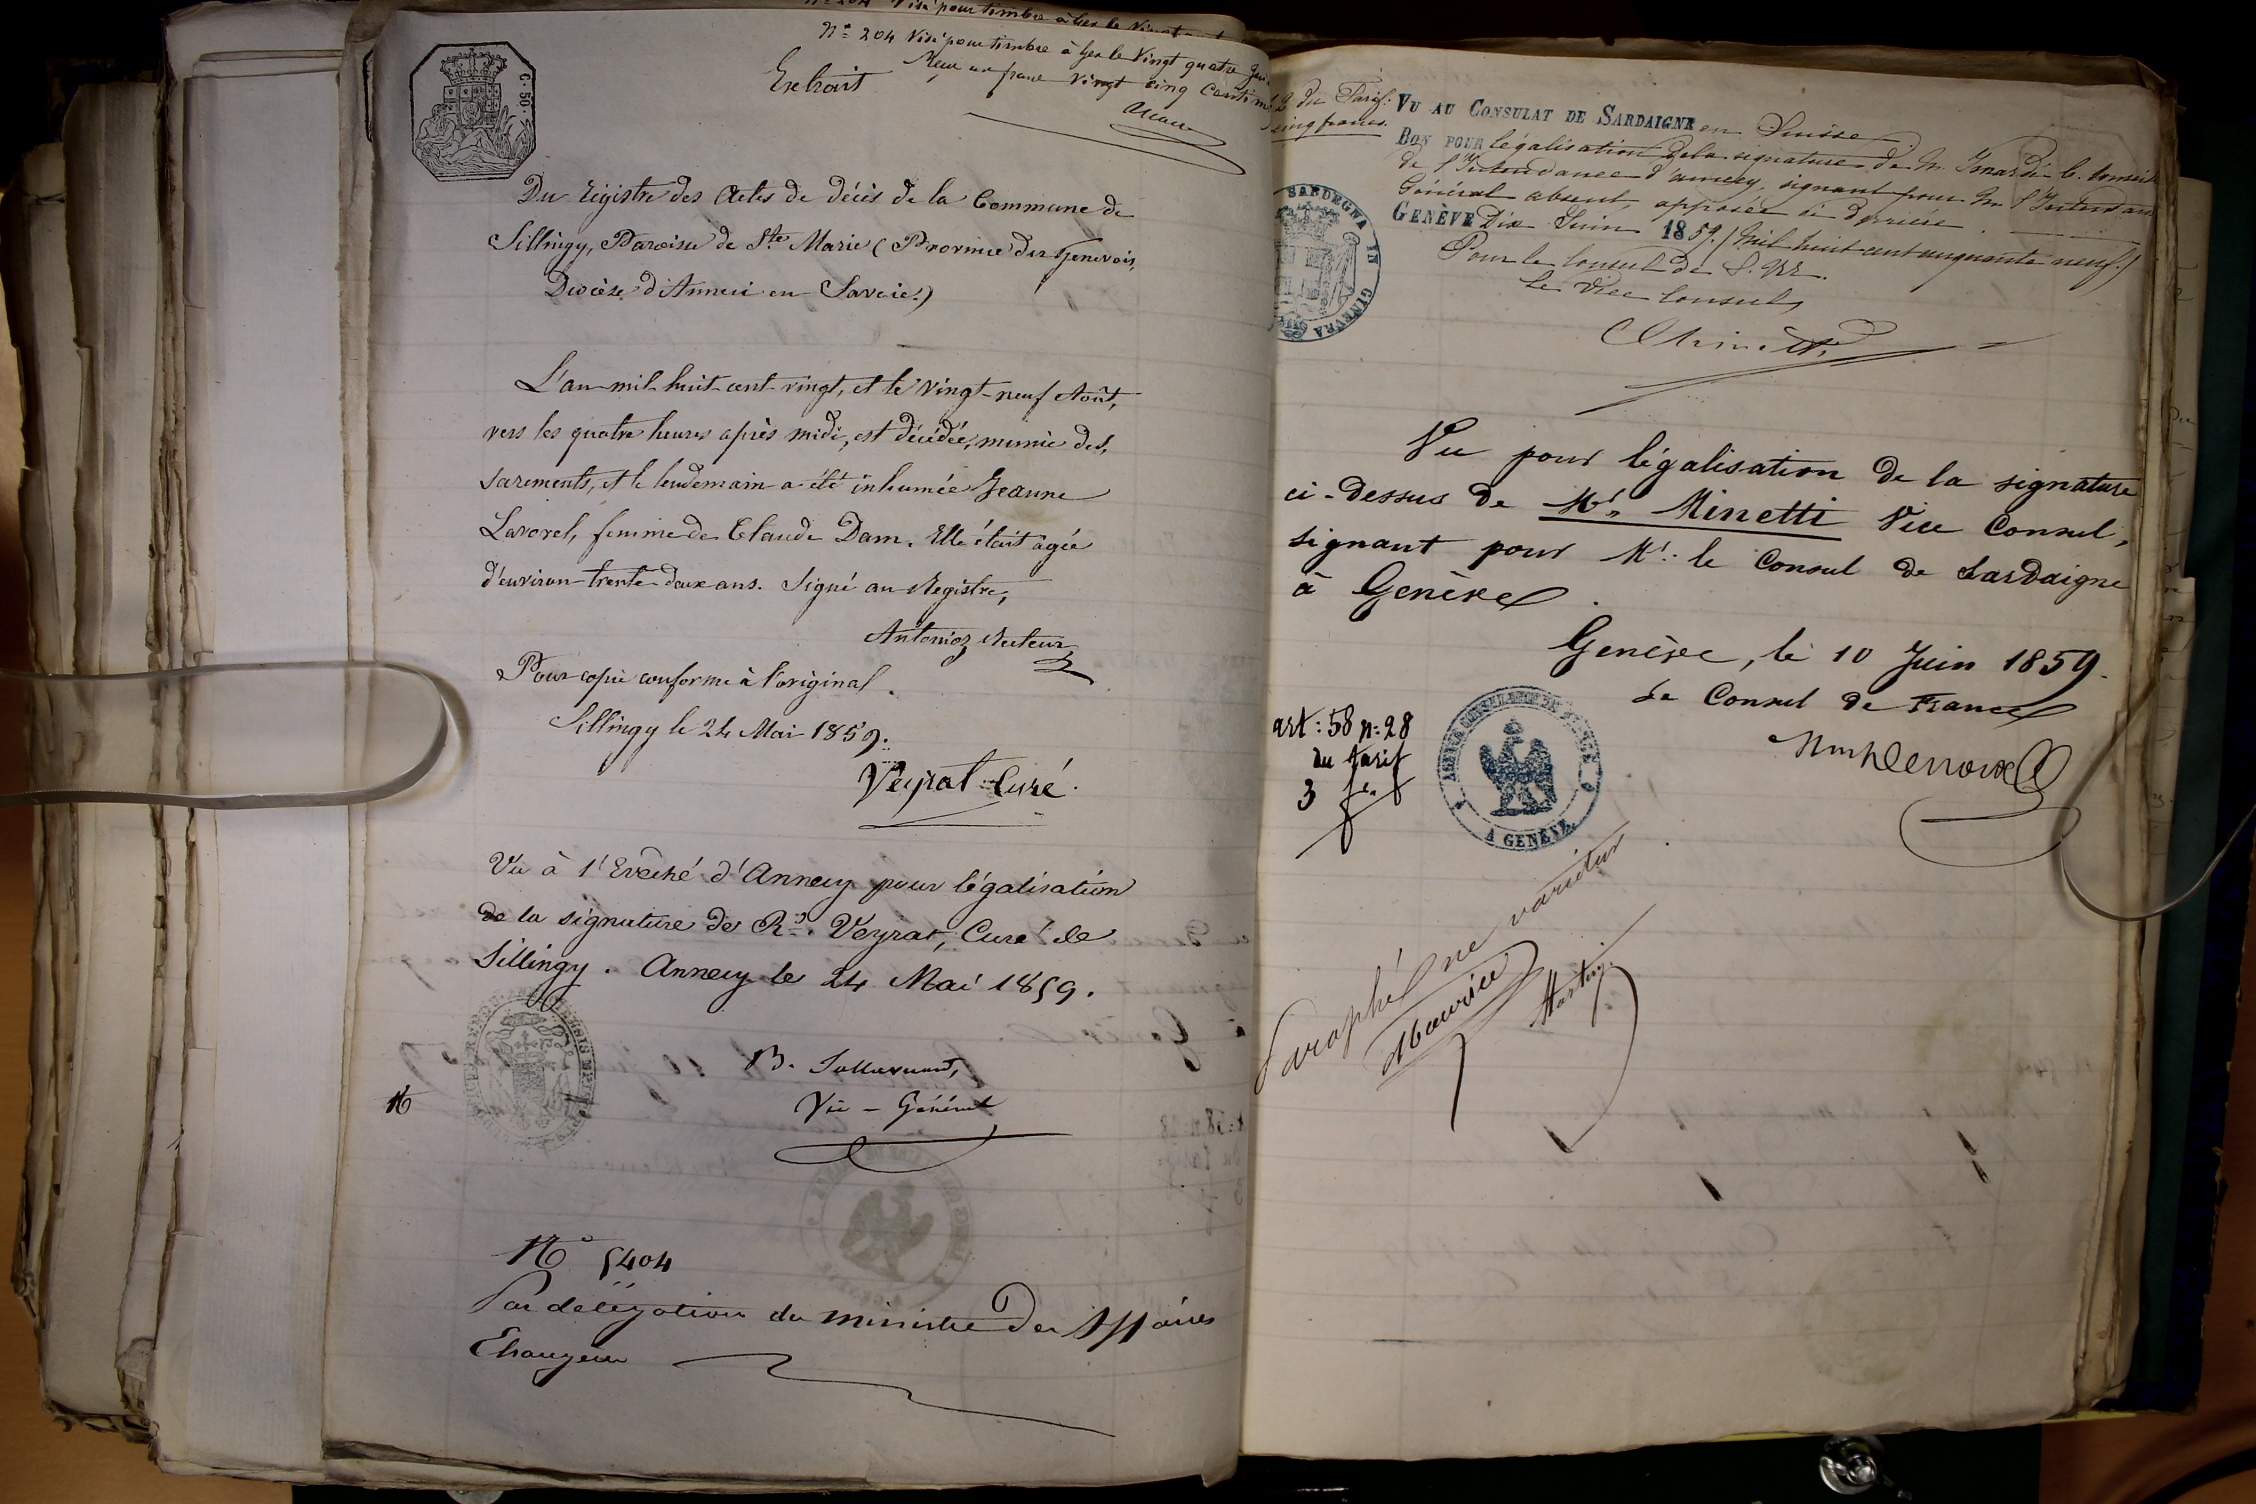 C. 50.
N° 204 Visé pour timbre à Gex le Vingt quatre
Reçu un franc vingt cinq centimes
Extrait
Du Régistre des Actes de décès de la Commune de
Sillingy, Paroisse de Ste Marie (Province du Genevois,
Diocèse d'Anneci en Savoie.)
L'an mil huit cent vingt, et le vingt-neuf Août,
vers les quatre heures après midi, est décédée, munie des
sacrements, et le lendemain a été inhumée Jeanne
Lavorel, femme de Claude Dam. Elle était agée
d'environ trente-deux ans. Signé au Registre,
Antonioz Recteur
Pour copie conforme à l'original.
Sillingy le 24 Mai 1859.
Veyrat Curé.
Vu à l'Evêché d'Annecy pour légalisation
de la signature de Rd. Veyrat, Curé de
Sillingy. Annecy le 24 Mai 1859.
Vic - Général
N° 5404
Par délégation du ministre des Affaires
Etrangeres
du Tarif.
cinq francs.
VU AU CONSULAT DE SARDAIGNE en Suisse
BON POUR légalisation de la signature de M.
de l'Intendance d'annecy, signant pour Mr l'Intendant
Général absent, apposée ci derrière.
GENÈVE Dix Juin 1859. (Mil huit cent cinquante neuf.)
Pour le Consul de S. M.
Le Vice Consul,
Minetti
SARDEGNA IN GINEVRA
Vu pour légalisation de la signature
ci-dessus de Mr. Minetti Vice Consul,
signant pour Mr. le Consul de Sardaigne
à Genève.
Genève, le 10 Juin 1859.
Le Consul de France
art: 58 n: 28
du tarif
3 fr.
A GENÈVE
Paraphé ne varietur
Maurice
Martin